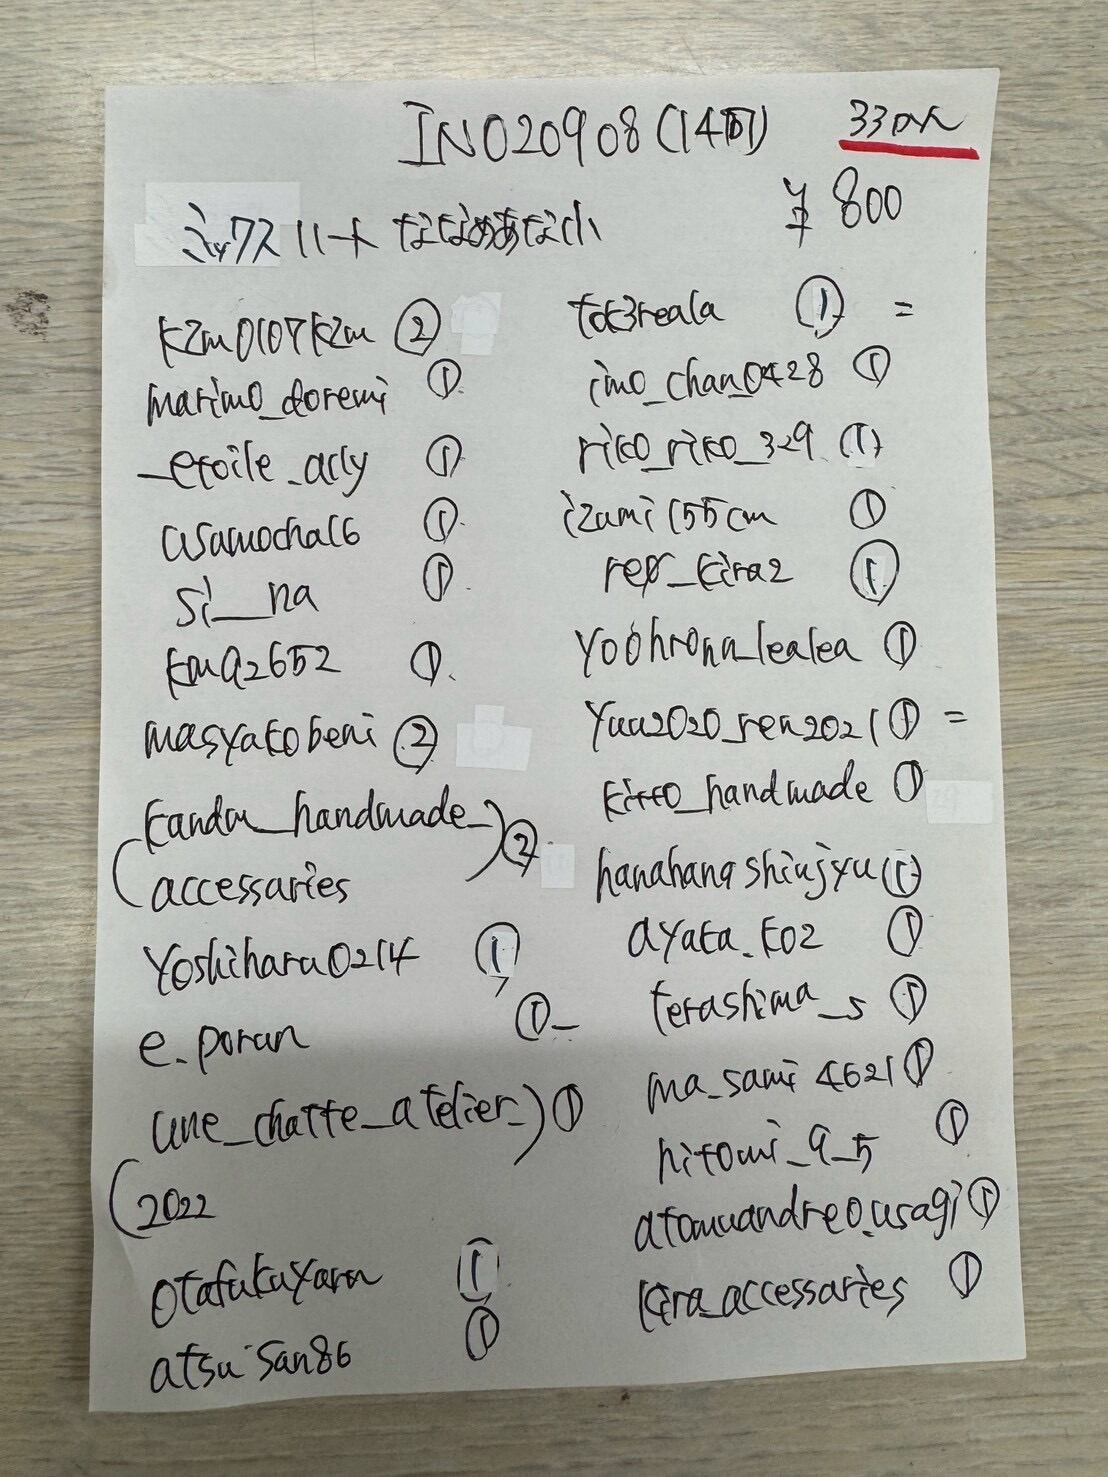 INO20908(14回) 33a人
ミックスハート ななめあな小 ¥800
kzm0107kzm ②
marimo_doremi ①
_etoile_acly ①
asamocha16 ①
si__na ①
kma2652 ①
masyakobeni ②
(kandm_handmade_) ②
accessaries
yoshiharu0214 ①
e.poran ①
une_chatte_atelier_) ①
(2022
otafukuyarn ①
atsuisan86 ①
tok3reala ① =
imo_chan0428 ①
riko_riko_329 ①
izumi155cm ①
_kira2 ①
yoohrona_lealea ①
yuu2020_ren2021 ① =
kitto_handmade ①
hanahanashinjyu ①
ayaka.ko2 ①
terashima_s ①
ma_sami4621 ①
hitomi_9_5 ①
atomuandreo.usagi ①
kira_accessaries ①